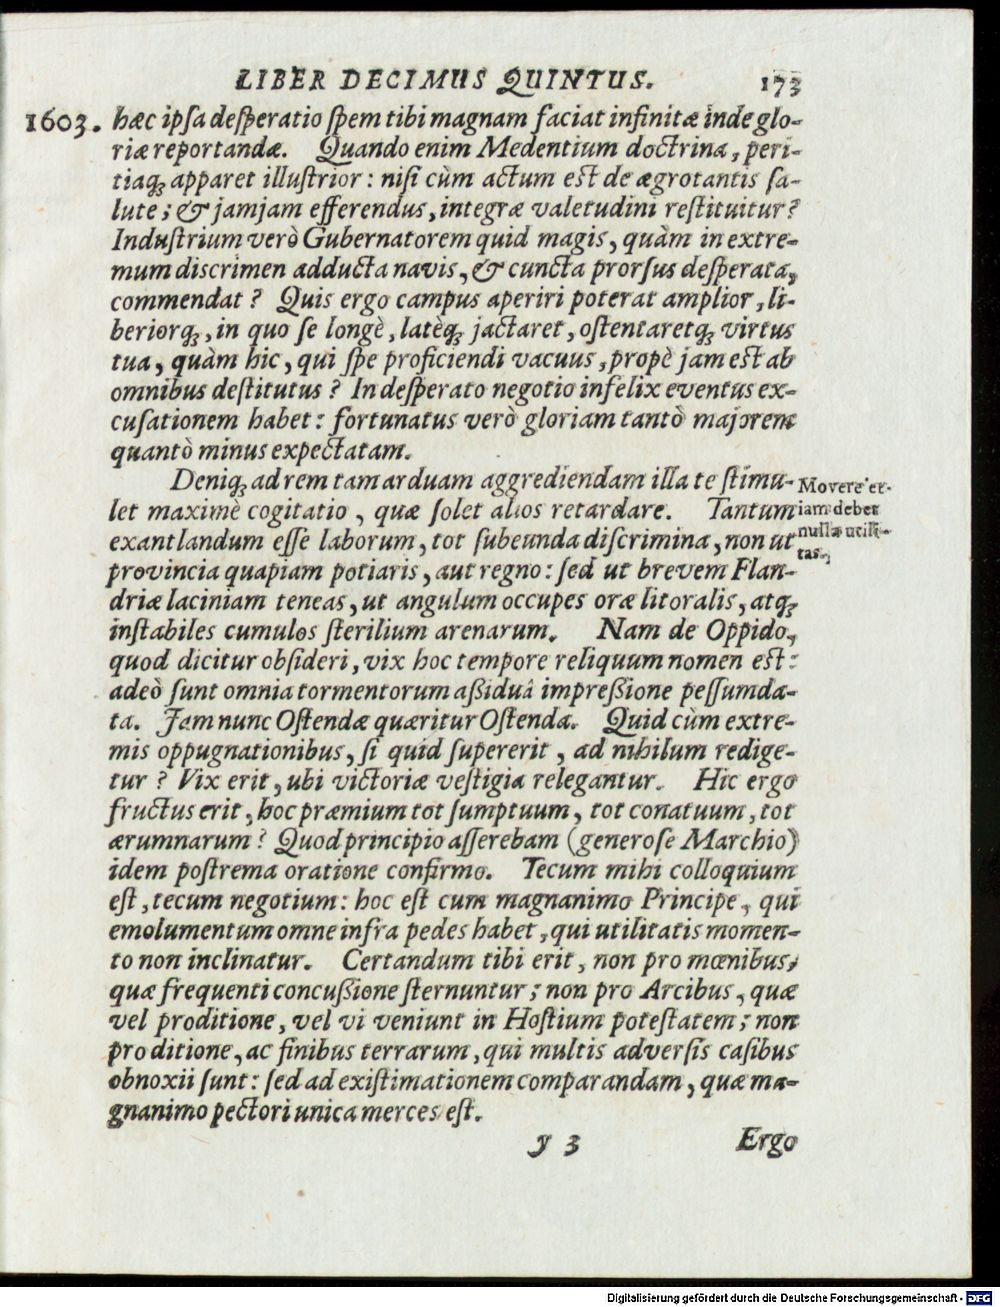 LIBER DECIMUS QUINTUS. 173
1603. hæc ipſa deſperatio ſpem tibi magnam faciat infinitæ inde glo-
riæ reportandæ. Quando enim Medentium doctrina, peri-
tiaq́ꝫ apparet illuſtrior: niſi cùm actum eſt de ægrotantis ſa-
lute; & jamjam efferendus, integræ valetudini reſtituitur?
Induſtrium verò Gubernatorem quid magis, quàm in extre-
mum discrimen adducta navis, & cuncta prorſus deſperata,
commendat? Quis ergo campus aperiri poterat amplior, li-
beriorq́ꝫ, in quo ſe longè, latèq́ꝫ jactaret, oſtentaretq́ꝫ virtus
tua, quàm hic, qui ſpe proficiendi vacuus, propè jam eſt ab
omnibus deſtitutus? In deſperato negotio infelix eventus ex-
cuſationem habet: fortunatus verò gloriam tantò majorem
quantò minus expectatam.
Deniq́ꝫ ad rem tam arduam aggrediendam illa te ſtimu-
let maximè cogitatio, quæ ſolet alios retardare. Tantum
exantlandum eſſe laborum, tot ſubeunda diſcrimina, non ut
provincia quapiam potiaris, aut regno: ſed ut brevem Flan-
driæ laciniam teneas, ut angulum occupes oræ litoralis, atq́ꝫ
inſtabiles cumulos ſterilium arenarum. Nam de Oppido,
quod dicitur obſideri, vix hoc tempore reliquum nomen eſt:
adeò ſunt omnia tormentorum aßiduâ impreßione peſſumda-
ta. Jam nunc Oſtendæ quæritur Oſtenda. Quid cùm extre-
mis oppugnationibus, ſi quid ſupererit, ad nihilum redige-
tur? Vix erit, ubi victoriæ veſtigia relegantur. Hic ergo
fructus erit, hoc præmium tot ſumptuum, tot conatuum, tot
ærumnarum? Quod principio aſſerebam (generoſe Marchio)
idem poſtrema oratione confirmo. Tecum mihi colloquium
eſt, tecum negotium: hoc eſt cum magnanimo Principe, qui
emolumentum omne infra pedes habet, qui utilitatis momen-
to non inclinatur. Certandum tibi erit, non pro mœnibus,
quæ frequenti concußione ſternuntur; non pro Arcibus, quæ
vel proditione, vel vi veniunt in Hoſtium poteſtatem; non
pro ditione, ac finibus terrarum, qui multis adverſis caſibus
obnoxii ſunt: ſed ad exiſtimationem comparandam, quæ ma-
gnanimo pectori unica merces eſt.
Movere et-
iam debet
nulla utili-
tas.
y 3 Ergo
Digitalisierung gefördert durch die Deutsche Forschungsgemeinschaft - DFG